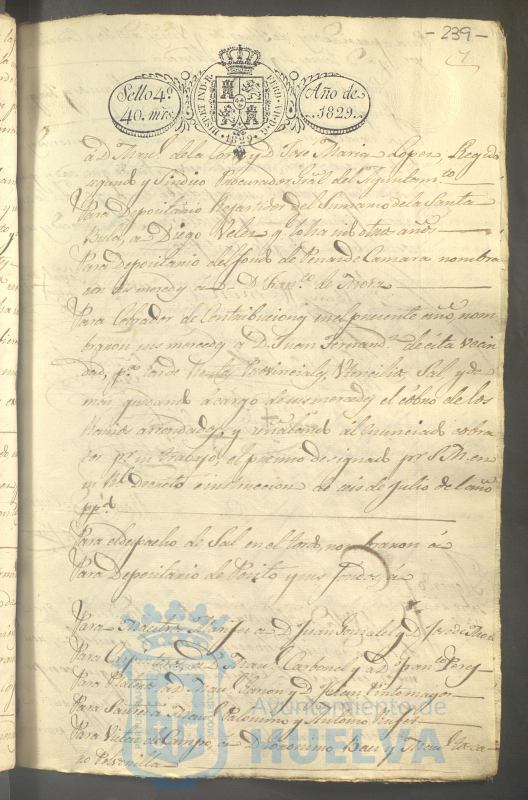 -239-
Sello 4º
40. mrs.
HISP. ET IND. R.
FERD. VII. D. G.
1829
Año de
1829.
a D. Man.l de la Corte y D. José Maria Lopez, Regidor
y Sindico Procurador Gral del Ayuntam.to
Para Depositario del Sumario de la Santa
Bula, a Diego Velez y lo ha sido otros años
Para Depositario del fondo de Penas de Camara nombra
sus mercedes a D. Fran.co de Mora
Para Cobrador de Contribuciones en el presente año, nom
braron sus mercedes a D. Juan Fernand.z de esta vecin
dad, p.a la de Rentas Provinciales, Utencilios, Sal y de
mas quedando a cargo de sus mercedes el cobro de los
Ramos arrendados, y señalando al enunciado cobra
dor p.r su trabajo, el premio designado p.r S.M. en
su Rl. Decreto e instruccion de seis de Julio de l año
pp.do
Para el despacho de Sal en el Todo nombraron á
Para Depositario de Posito y sus fondos, á
Para Maestro a D. Juan Gonzalez y D. José de Mora
Para a D. Man.l Carbonel y a D. Fran.co Perez
Para Man.l y D. Juan Sotomayor
Para Santeria Palomino y Antonio
Para Vista de Campo a D. Geronimo y Man.l
no
Ayuntamiento de
HUELVA